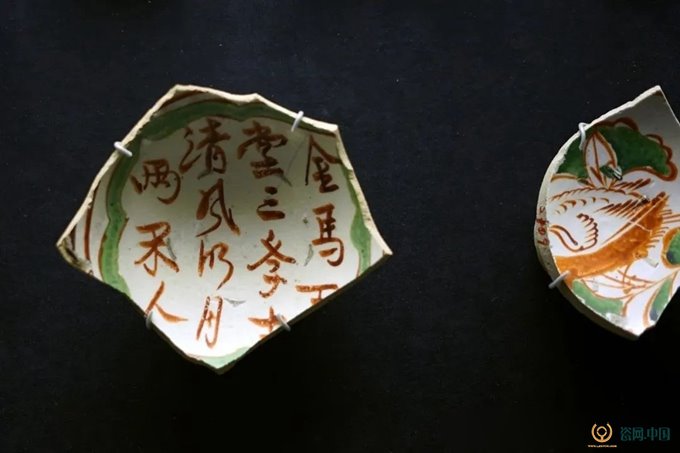 金馬玉
堂三斈士
清风明月
两閑人
瓷网.中国